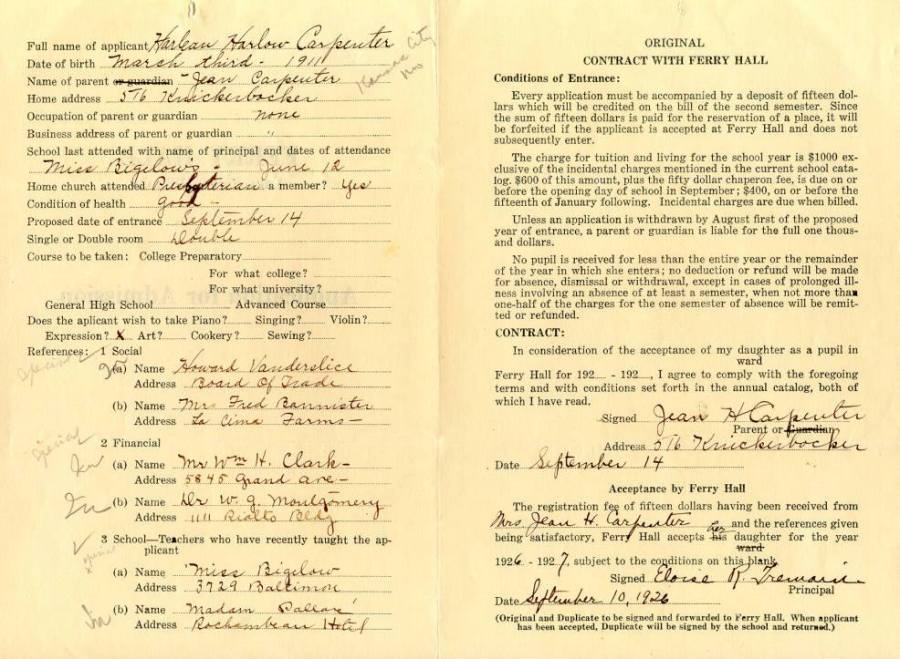 Full name of applicant Harlean Harlow Carpenter
Date of birth March third - 1911
Kansas City
Mo
Name of parent or guardian - Jean Carpenter
Home address 516 Knickerbocker
Occupation of parent or guardian none
Business address of parent or guardian "
School last attended with name of principal and dates of attendance
Miss Bigelow's - June 12
Home church attended Presbyterian a member? Yes
Condition of health good -
Proposed date of entrance September 14
Single or Double room Double
Course to be taken: College Preparatory
For what college?
For what university?
General High School Advanced Course
Does the aplicant wish to take Piano? Singing? Violin?
Expression? X Art? Cookery? Sewing?
References: 1 Social
(a) Name Howard Vanderslice
Address Board Of Trade
(b) Name Mrs Fred Bannister
Address La Cima Farms -
special
2 Financial
(a) Name Mr Wm H. Clark -
Address 5845 Grand ave -
(b) Name Dr W. G. Montgomery
Address 1111 Rialto Bldg
3 School—Teachers who have recently taught the ap-
plicant
special
(a) Name Miss Bigelow
Address 3729 Baltimore
(b) Name Madam
Address Rochambeau Hotel
ORIGINAL
CONTRACT WITH FERRY HALL
Conditions of Entrance:
Every application must be accompanied by a deposit of fifteen dol-
lars which will be credited on the bill of the second semester. Since
the sum of fifteen dollars is paid for the reservation of a place, it will
be forfeited if the applicant is accepted at Ferry Hall and does not
subsequently enter.
The charge for tuition and living for the school year is $1000 ex-
clusive of the incidental charges mentioned in the current school cata-
log. $600 of this amount, plus the fifty dollar chaperon fee, is due on or
before the opening day of school in September; $400, on or before the
fifteenth of January following. Incidental charges are due when billed.
Unless an application is withdrawn by August first of the proposed
year of entrance, a parent or guardian is liable for the full one thous-
and dollars.
No pupil is received for less than the entire year or the remainder
of the year in which she enters; no deduction or refund will be made
for absence, dismissal or withdrawal, except in cases of prolonged ill-
ness involving an absence of at least a semester, when not more than
one-half of the charges for the one semester of absence will be remit-
ted or refunded.
CONTRACT:
In consideration of the acceptance of my daughter as a pupil in
ward
Ferry Hall for 192 - 192 , I agree to comply with the foregoing
terms and with conditions set forth in the annual catalog, both of
which I have read.
Signed Jean H Carpenter
Parent or Guardian
Address 516 Knickerbocker
Date September 14
Acceptance by Ferry Hall
The registration fee of fifteen dollars having been received from
Mrs. Jean H. Carpenter and the references given
her
being satisfactory, Ferry Hall accepts his daughter for the year
ward
1926 - 1927, subject to the conditions on this blank.
Signed Eloise R. Tremain
Principal
Date September 10, 1926
(Original and Duplicate to be signed and forwarded to Ferry Hall. When applicant
has been accepted, Duplicate will be signed by the school and returned.)